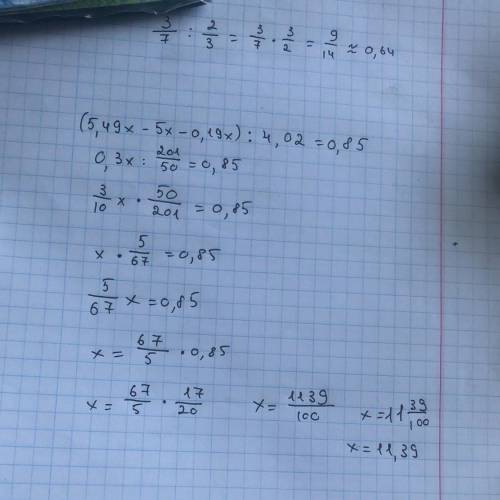 3/7 : 2/3 = 3/7 · 3/2 = 9/14 ≈ 0,64
(5,49x - 5x - 0,19x) : 4,02 = 0,85
0,3x : 201/50 = 0,85
3/10 x · 50/201 = 0,85
x · 5/67 = 0,85
5/67 x = 0,85
x = 67/5 · 0,85
x = 67/5 · 17/20 x = 1139/100 x = 11 39/100
x = 11,39